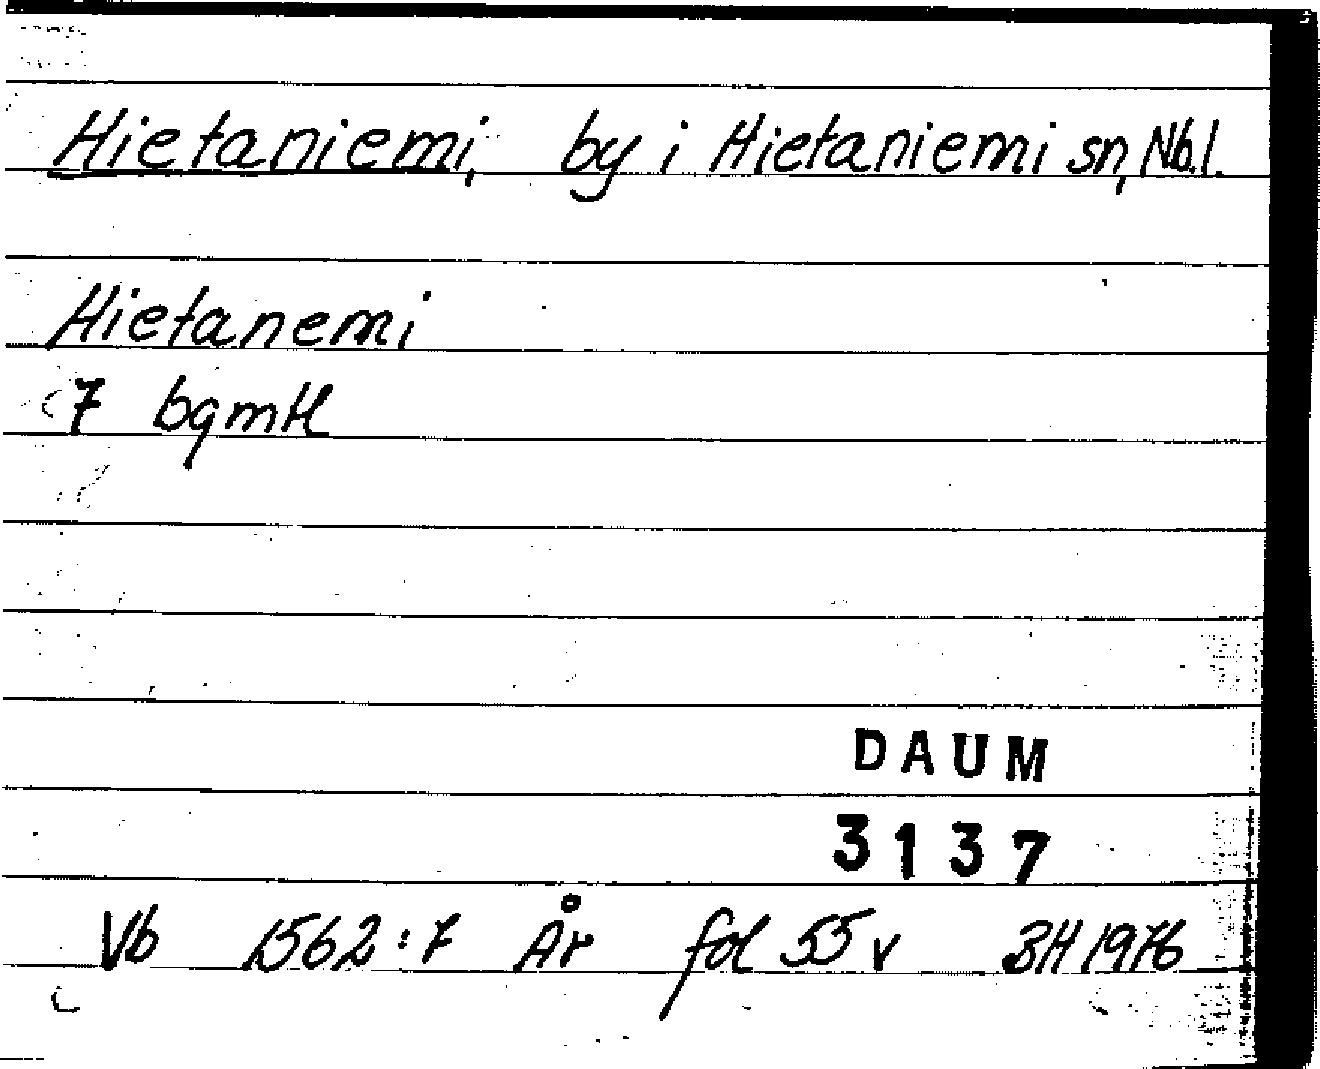 Hietaniemi, by i Hietaniemi sn, Nb.l.
Hietanemi
7 bgmtl
DAUM
3137
Vb 1562:7 År fol 55 v BH 1976